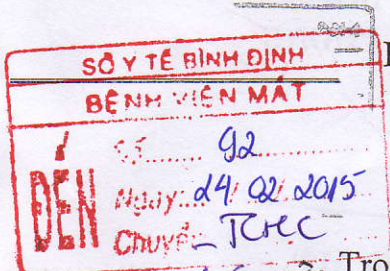 SỞ Y TẾ BÌNH ĐỊNH
BỆNH VIỆN MẮT
ĐẾN
Số......... 92
Ngày: 24/ 02/ 2015
Chuyển TCHC
Tro